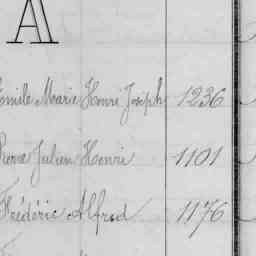 A
Emile Marie Henri Joseph 1236
Pierre Julien Henri 1101
Frédéric Alfred 1176